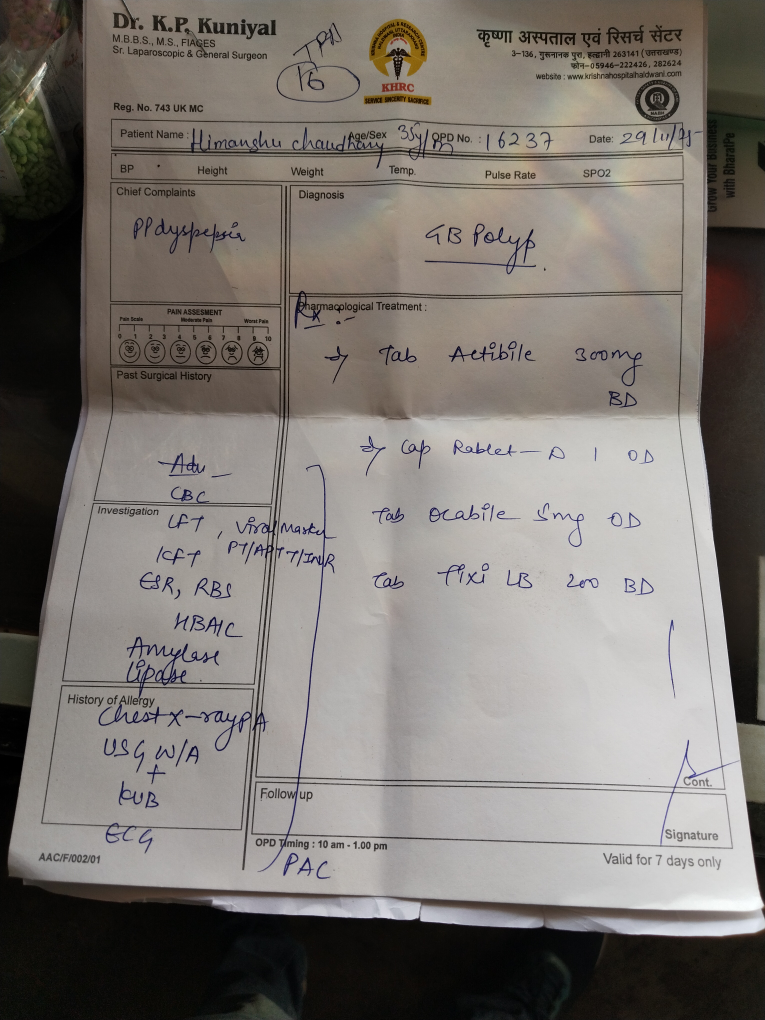 Dr. K.P. Kuniyal
M.B.B.S., M.S., FIAGES
Sr. Laparoscopic & General Surgeon
Reg. No. 743 UK MC
TPA
16
KRISHNA HOSPITAL & RESEARCH CENTRE
HALDWANI, UTTARAKHAND
INDIA
KHRC
SERVICE SINCERITY SACRIFICE
कृष्णा अस्पताल एवं रिसर्च सेंटर
3-136, गुरूनानक पुरा, हल्द्वानी 263141 (उत्तराखण्ड)
फोन-05946-222426, 282624
website : www.krishnahospitalhaldwani.com
NABH
Patient Name : Himanshu chaudhary Age/Sex 35y/m OPD No. : 16237 Date: 29/11/25
BP Height Weight Temp. Pulse Rate SPO2
Chief Complaints
PP dyspepsia
Diagnosis
GB Polyp
PAIN ASSESMENT
Pain Scale Moderate Pain Worst Pain
0 1 2 3 4 5 6 7 8 9 10
Past Surgical History
Adv
CBC
Investigation
LFT, Viral Marker
KFT PT/APTT/INR
ESR, RBS
HBA1C
Amylase
Lipase
History of Allergy
Chest X-ray PA
USG W/A
+
KUB
ECG
PAC
Pharmacological Treatment :
Rx :-
Tab Actibile 300mg
BD
Cap Rablet-D 1 OD
Tab Ocabile 5mg OD
Tab Fixi LB 200 BD
Cont.
Follow up
Signature
OPD Timing : 10 am - 1.00 pm
Valid for 7 days only
AAC/F/002/01
Grow Your Business
with BharatPe